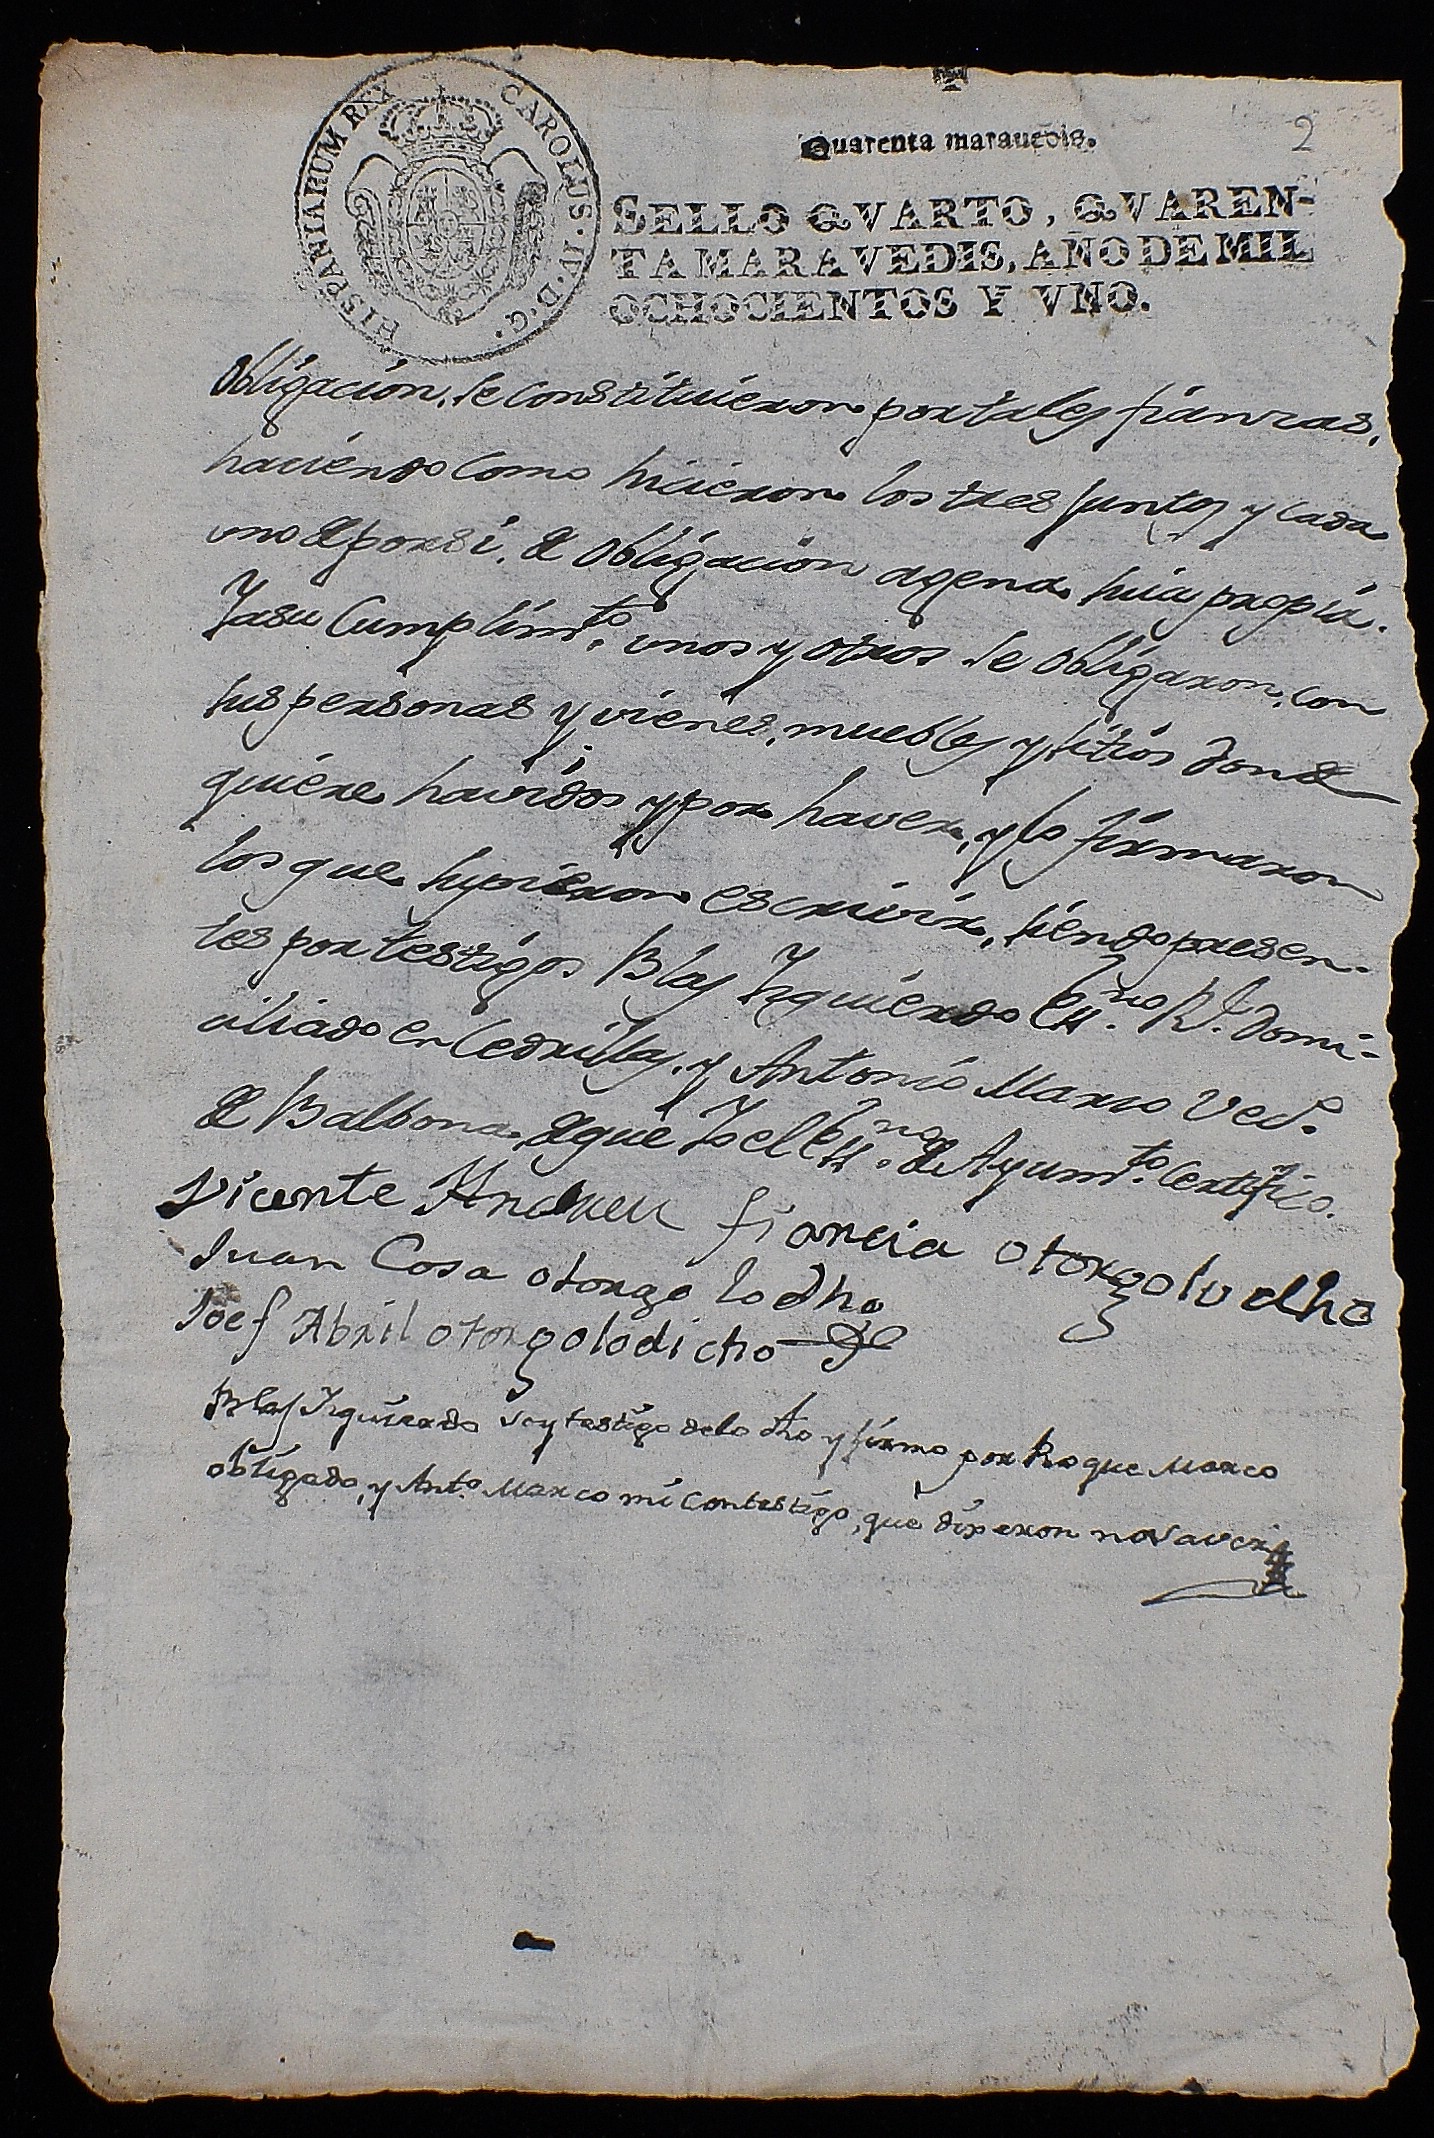 HISPANIARUM REX CAROLUS·IV·D·G·
Quarenta maravedis.
2
SELLO QVARTO, QVAREN-
TA MARAVEDIS, AÑO DE MIL
OCHOCIENTOS Y VNO.
obligacion, se constituieron por tales fianzas,
haciendo como hicieron los tres juntos y cada
uno de por si, de obligacion agena suia propia.
Y a su Cumplimto. unos y otros se obligaron, con
sus personas y vienes, muebles y sitios donde
quiere havidos y por haver, y lo firmaron
los que supieron escrivir, siendo presen-
tes por testigos Blas Yzquierdo Essno. Rl. domi-
ciliado en Cedrillas, y Antonio Marco Veco.
de Balbona, de que Yo el Essno. de Ayumto. Certifico.
Vicente Andreu fiancia otorgo lo dho
Juan Cosa otorgo lo dho
Josef Abril otorgo lo dicho
Blas Yzquierdo soy testigo de lo dho y firmo por Roque Marco
obligado, y Anto. Marco mi contestigo, que dixeron no saver